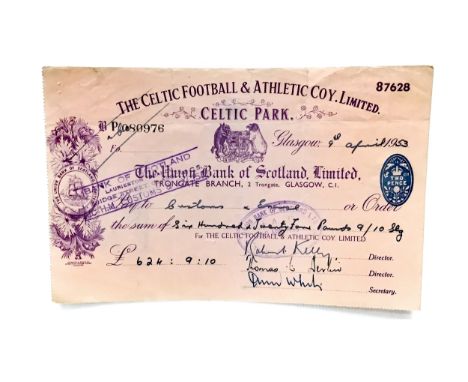 THE CELTIC FOOTBALL & ATHLETIC COY. LIMITED.
87628
CELTIC PARK.
B P/A 080976
Glasgow, 9th April 1953
Fo.
BANK OF SCOTLAND
LAURIESTON
BRIDGE STREET
The Union Bank of Scotland, Limited,
TRONGATE BRANCH, 2 Trongate, GLASGOW, C.1.
TWO PENCE
Pay to Customs & Excise or Order
the sum of Six Hundred & Twenty Four Pounds 9/10 Stg
For THE CELTIC FOOTBALL & ATHLETIC COY LIMITED
£ 624 : 9 : 10
Robert Kelly Director.
Director.
John White Secretary.